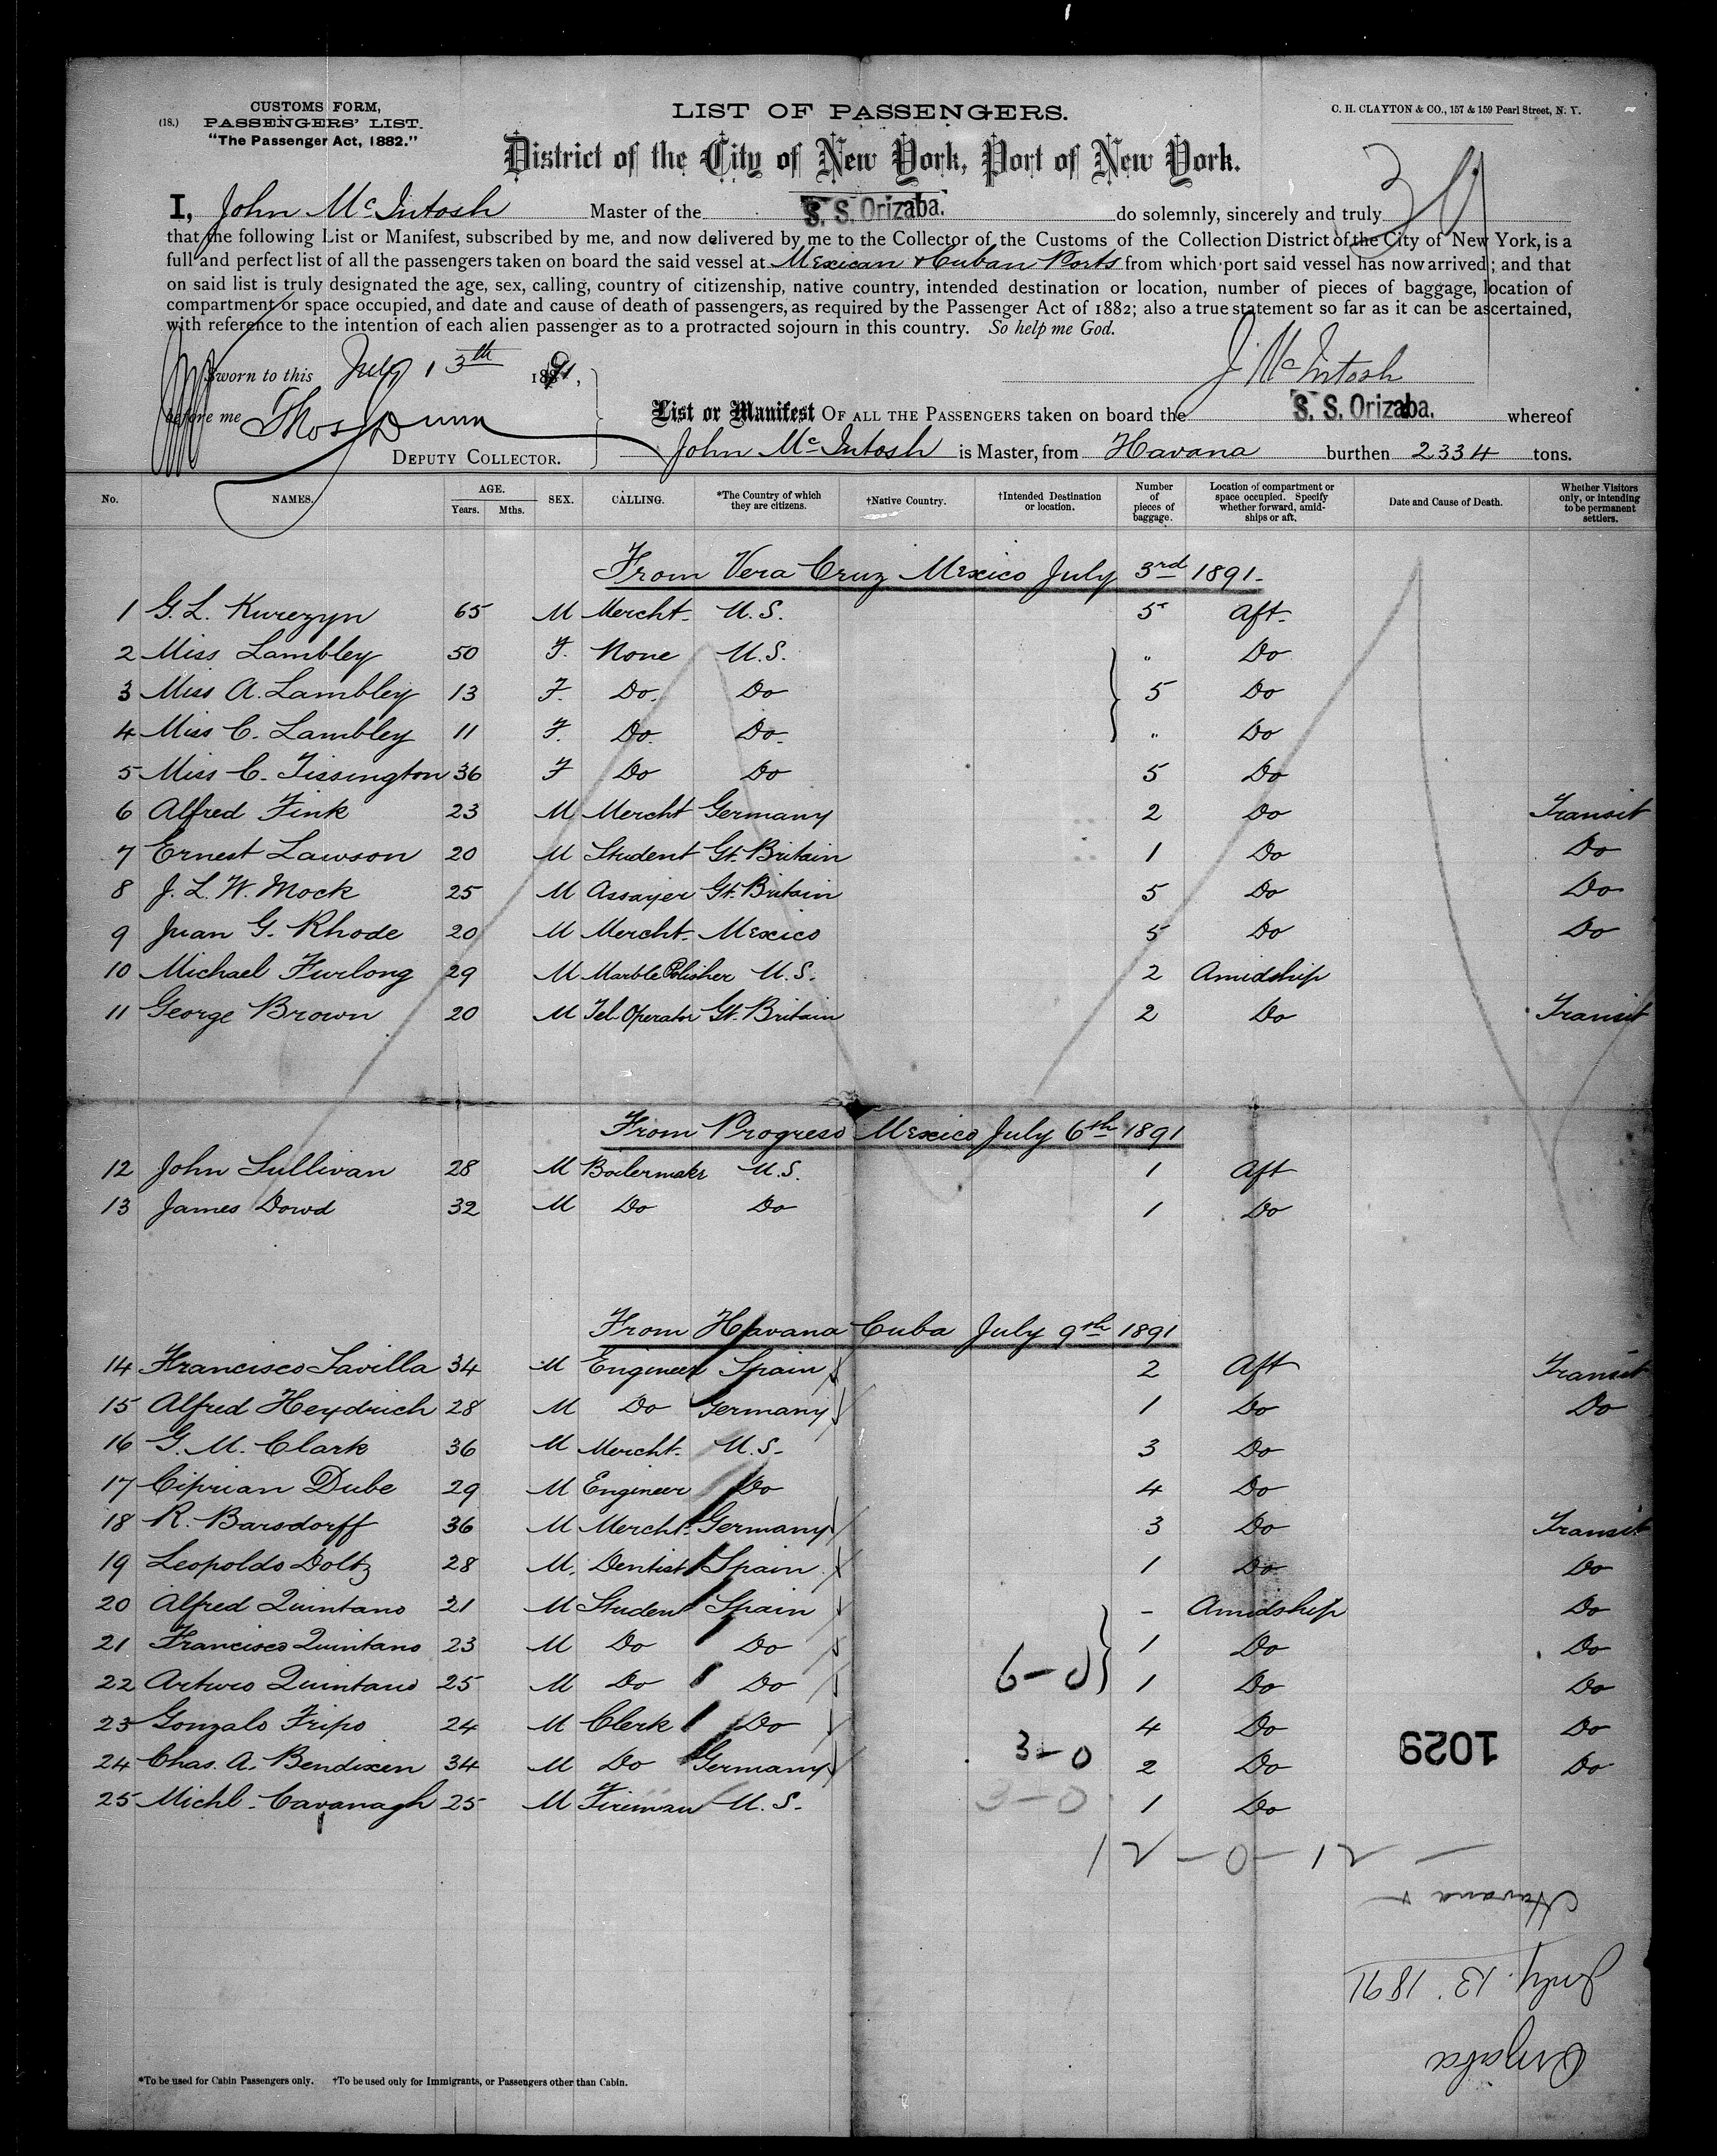 (18.)
CUSTOMS FORM,
PASSENGERS' LIST.
"The Passenger Act, 1882."
LIST OF PASSENGERS.
C. H. CLAYTON & CO., 157 & 159 Pearl Street, N. Y.
District of the City of New York, Port of New York.
I, John McIntosh Master of the S. S. Orizaba. do solemnly, sincerely and truly
that the following List or Manifest, subscribed by me, and now delivered by me to the Collector of the Customs of the Collection District of the City of New York, is a
full and perfect list of all the passengers taken on board the said vessel at Mexican & Cuban Ports from which port said vessel has now arrived; and that
on said list is truly designated the age, sex, calling, country of citizenship, native country, intended destination or location, number of pieces of baggage, location of
compartment or space occupied, and date and cause of death of passengers, as required by the Passenger Act of 1882; also a true statement so far as it can be ascertained,
with reference to the intention of each alien passenger as to a protracted sojourn in this country. So help me God.
Sworn to this July 13th 1891,
J. McIntosh
before me Thos Dunn
DEPUTY COLLECTOR.
List or Manifest OF ALL THE PASSENGERS taken on board the S. S. Orizaba. whereof
John McIntosh is Master, from Havana burthen 2334 tons.
No. NAMES. AGE. Years. Mths. SEX. CALLING. *The Country of which they are citizens. †Native Country. †Intended Destination or location. Number of pieces of baggage. Location of compartment or space occupied. Specify whether forward, amidships or aft. Date and Cause of Death. Whether Visitors only, or intending to be permanent settlers.
From Vera Cruz Mexico July 3rd 1891-
1 G. L. Kurezyn 65 M Mercht. U.S. 5 Aft.
2 Miss Lambley 50 F. None U.S. " Do
3 Miss A. Lambley 13 F. Do. Do 5 Do
4 Miss C. Lambley 11 F. Do. Do. " Do
5 Miss C. Tissington 36 F Do Do 5 Do
6 Alfred Fink 23 M Mercht Germany 2 Do Transit
7 Ernest Lawson 20 M Student Gt. Britain 1 Do Do
8 J. L. W. Mock 25 M Assayer Gt. Britain 5 Do Do
9 Juan G. Rhode 20 M Mercht. Mexico 5 Do Do
10 Michael Furlong 29 M Marble Polisher U.S. 2 Amidship
11 George Brown 20 M Tel. Operator Gt. Britain 2 Do Transit
From Progreso Mexico July 6th 1891
12 John Sullivan 28 M Boilermakr U.S. 1 Aft
13 James Dowd 32 M Do Do 1 Do
From Havana Cuba July 9th 1891
14 Francisco Savilla 34 M Engineer Spain 2 Aft Transit
15 Alfred Heydrich 28 M Do Germany 1 Do Do
16 G. M. Clark 36 M Mercht. U.S. 3 Do
17 Ciprian Dube 29 M Engineer Do 4 Do
18 R. Barsdorff 36 M Mercht. Germany 3 Do Transit
19 Leopoldo Doltz 28 M. Dentist Spain 1 Do Do
20 Alfred Quintano 21 M Student Spain - Amidship Do
21 Francisco Quintano 23 M Do Do 1 Do Do
22 Arturo Quintano 25 M Do Do 6-0 1 Do Do
23 Gonzalo Fripo 24 M Clerk Do 4 Do Do
24 Chas. A. Bendixen 34 M Do Germany 3-0 2 Do Do
1029
25 Michl. Cavanagh 25 M Fireman U.S. 3-0 1 Do
21-0-21
Havana +
July 13. 1891
Orizaba
*To be used for Cabin Passengers only. †To be used only for Immigrants, or Passengers other than Cabin.